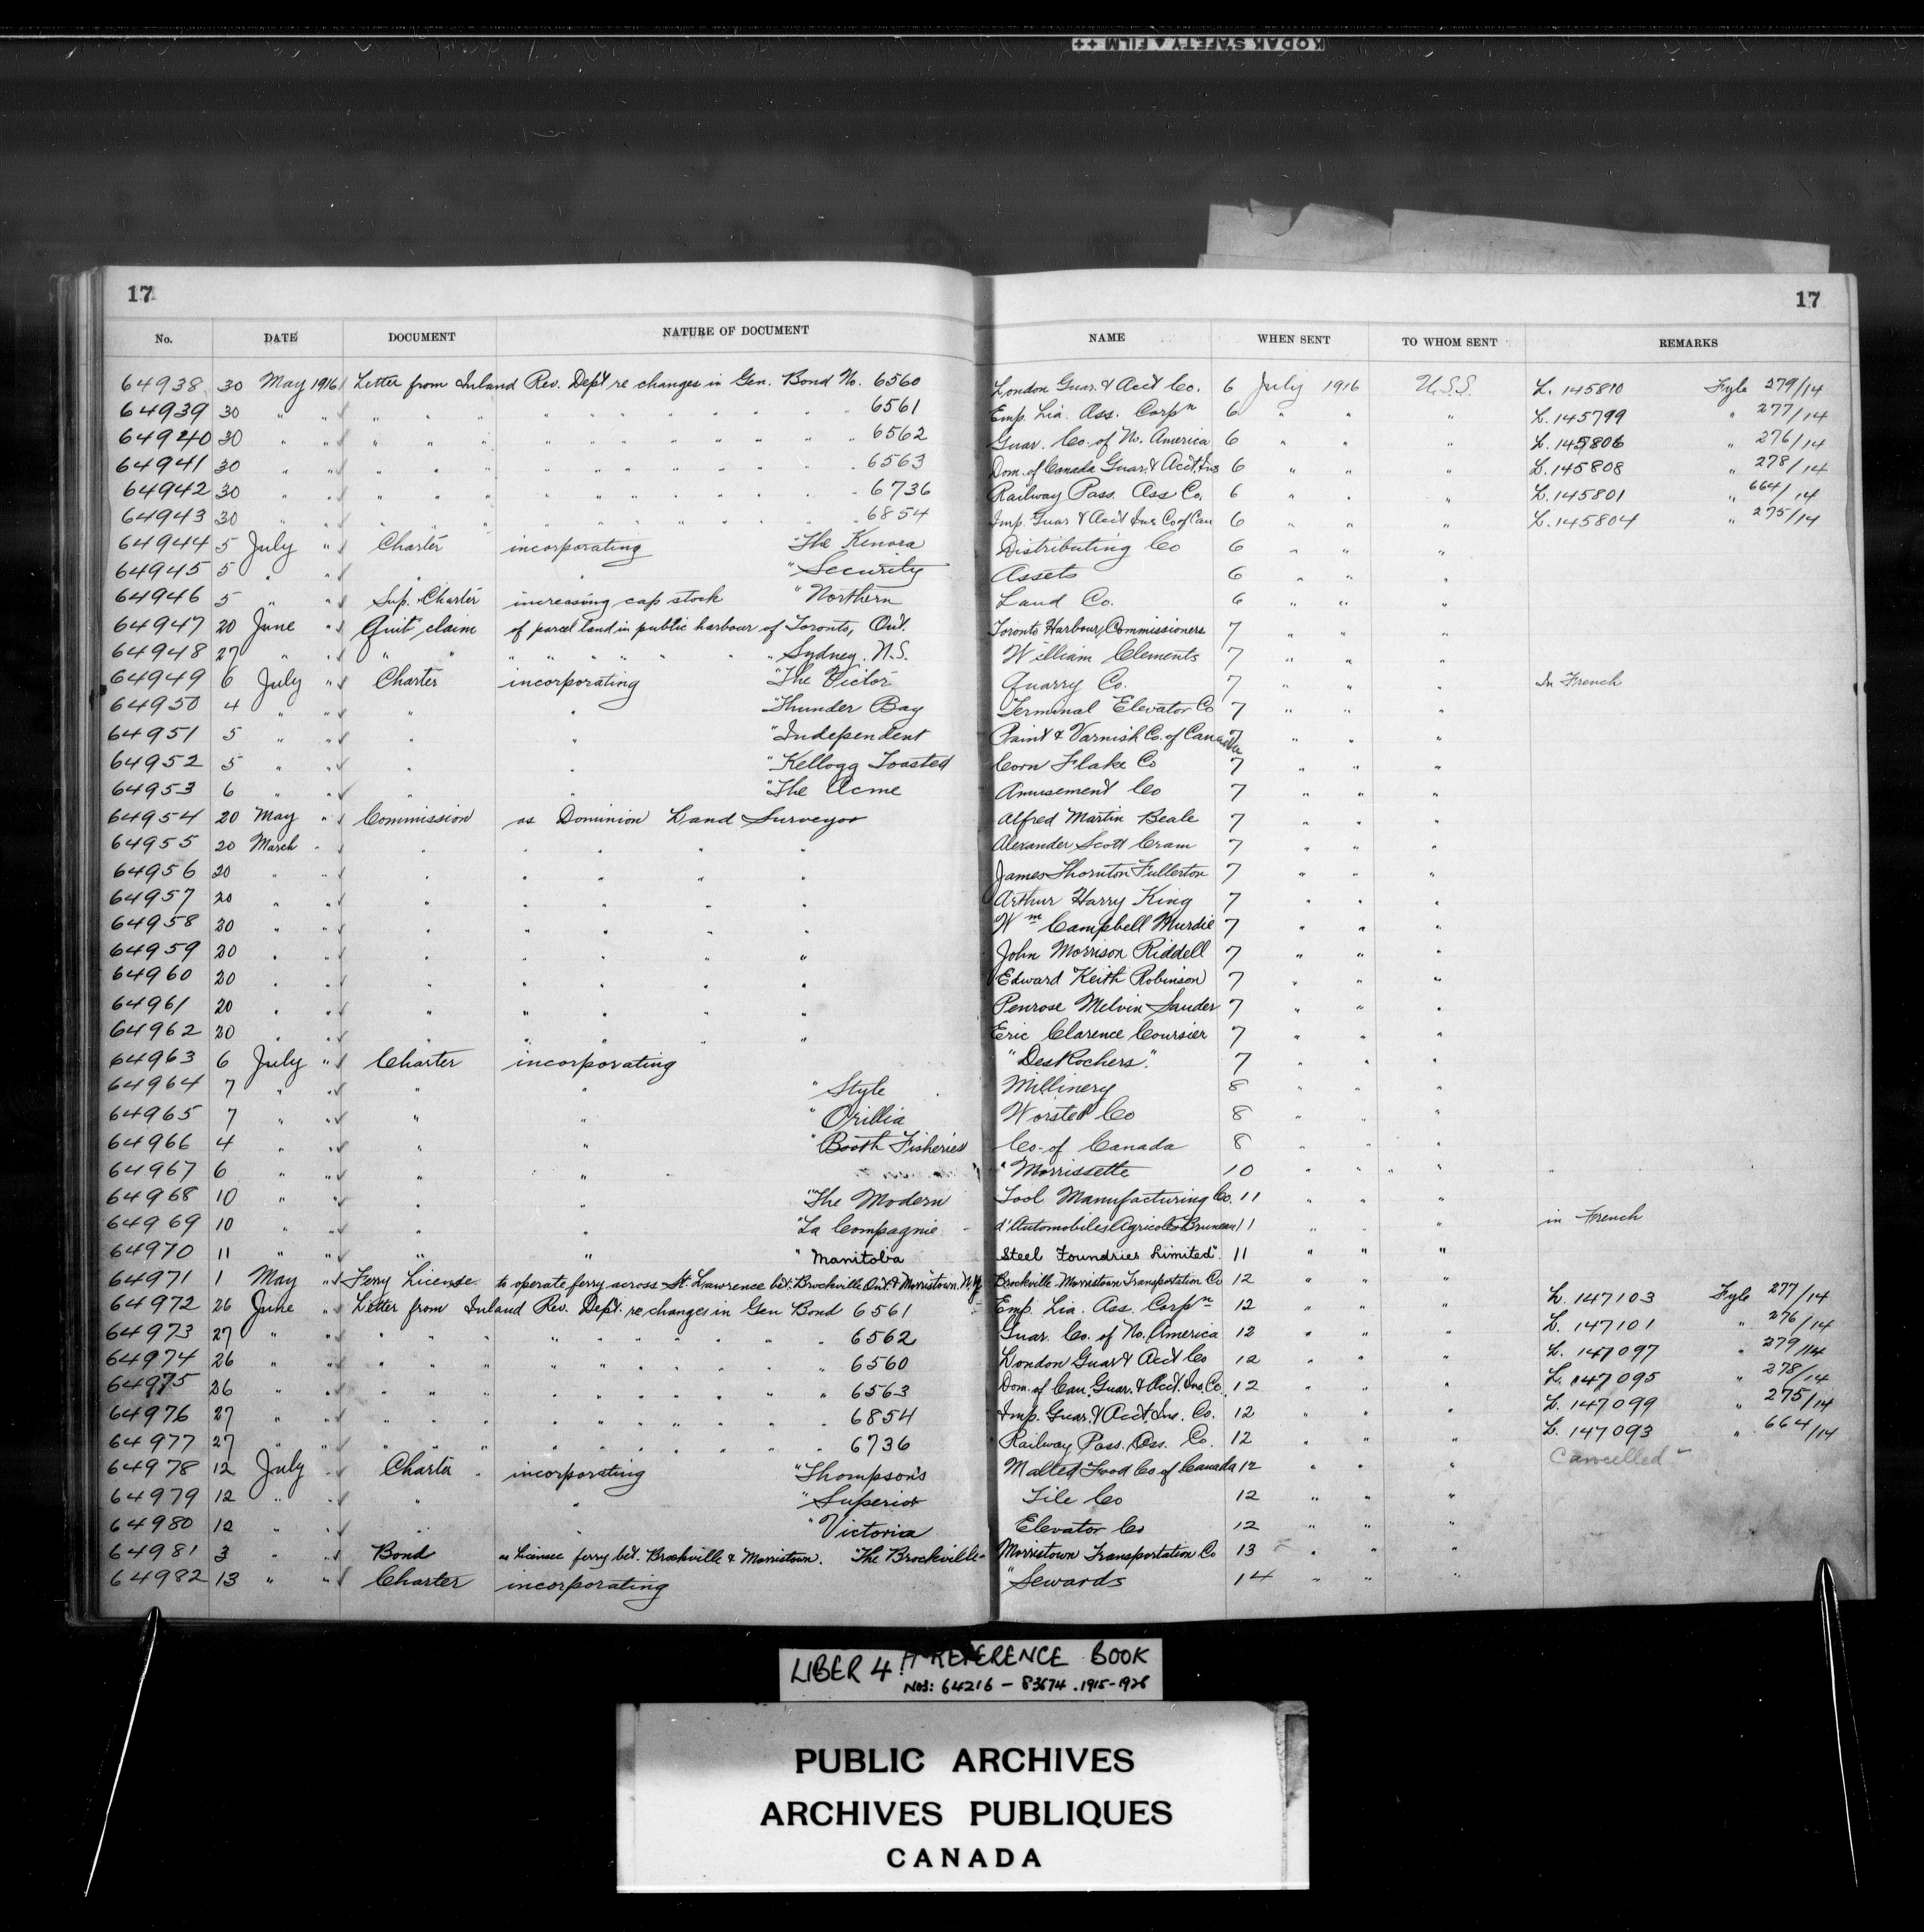 KODAK SAFETY FILM ++
17 17
No. DATE DOCUMENT NATURE OF DOCUMENT NAME WHEN SENT TO WHOM SENT REMARKS
64938 30 May 1916 Letter from Inland Rev. Dept re changes in Gen. Bond No. 6560 London Guar. & Acct Co. 6 July 1916 U.S.S. L. 145810 Fyle 279/14
64939 30 " " " " " " " " " " " " 6561 Emp. Lia. Ass. Corpn 6 " " " L. 145799 " 277/14
64940 30 " " " " " " " " " " " " 6562 Guar. Co. of No. America 6 " " " L. 145806 " 276/14
64941 30 " " " " " " " " " " " " 6563 Dom. of Canada Guar. & Acct. Ins 6 " " " L. 145808 " 278/14
64942 30 " " " " " " " " " " " " 6736 Railway Pass. Ass Co. 6 " " " L. 145801 " 664/14
64943 30 " " " " " " " " " " " " 6854 Imp. Guar & Acct Ins Co of Can 6 " " " L. 145804 " 275/14
64944 5 July " Charter incorporating "The Kenora Distributing Co 6 " " "
64945 5 " " " " "Security Assets 6 " " "
64946 5 " " Sup. Charter increasing cap stock "Northern Land Co. 6 " " "
64947 20 June " Quit claim of parcel land in public harbour of Toronto, Ont. Toronto Harbour Commissioners 7 " " "
64948 27 " " " " " " " " " " " Sydney. N.S. William Clements 7 " " "
64949 6 July " Charter incorporating "The Victor Quarry Co. 7 " " " In French
64950 4 " " " " "Thunder Bay Terminal Elevator Co 7 " " "
64951 5 " " " " "Independent Paint & Varnish Co. of Canada 7 " " "
64952 5 " " " " "Kellogg Toasted Corn Flake Co 7 " " "
64953 6 " " " " "The Acme Amusement Co 7 " " "
64954 20 May " Commission as Dominion Land Surveyor Alfred Martin Beale 7 " " "
64955 20 March " " " " " " Alexander Scott Cram 7 " " "
64956 20 " " " " " " " James Thornton Fullerton 7 " " "
64957 20 " " " " " " " Arthur Harry King 7 " " "
64958 20 " " " " " " " Wm Campbell Murdie 7 " " "
64959 20 " " " " " " " John Morrison Riddell 7 " " "
64960 20 " " " " " " " Edward Keith Robinson 7 " " "
64961 20 " " " " " " " Penrose Melvin Sauder 7 " " "
64962 20 " " " " " " " Eric Clarence Coursier 7 " " "
64963 6 July " Charter incorporating "DesRochers". 7 " " "
64964 7 " " " " "Style Millinery 8 " " "
64965 7 " " " " "Orillia Worsted Co 8 " " "
64966 4 " " " " "Booth Fisheries Co. of Canada 8 " " "
64967 6 " " " " "Morrissette 10 " " " "
64968 10 " " " " "The Modern Tool Manufacturing Co. 11 " " "
64969 10 " " " " "La Compagnie d'Automobiles Agricoles Bruneau 11 " " " in French
64970 11 " " " " "Manitoba Steel Foundries Limited". 11 " " "
64971 1 May " Ferry License to operate ferry across St. Lawrence bet. Brockville Ont. & Morristown. N.Y. Brockville Morristown Transportation Co 12 " " "
64972 26 June " Letter from Inland Rev. Dept. re changes in Gen Bond 6561 Emp. Lia. Ass. Corpn 12 " " " L. 147103 Fyle 277/14
64973 27 " " " " " " " " " " " " 6562 Guar. Co. of No. America 12 " " " L. 147101 " 276/14
64974 26 " " " " " " " " " " " " 6560 London Guar & Acct Co 12 " " " L. 147097 " 279/14
64975 26 " " " " " " " " " " " " 6563 Dom. of Can. Guar. & Acct. Ins. Co. 12 " " " L. 147095 " 278/14
64976 27 " " " " " " " " " " " " 6854 Imp. Guar. & Acct. Ins. Co. 12 " " " L. 147099 " 275/14
64977 27 " " " " " " " " " " " " 6736 Railway Pass. Ass. Co. 12 " " " L. 147093 " 664/14
64978 12 July " Charter incorporating "Thompson's Malted Food Co of Canada 12 " " " Cancelled
64979 12 " " " " "Superior Tile Co 12 " " "
64980 12 " " " " "Victoria Elevator Co 12 " " "
64981 3 " " Bond as licensee ferry bet. Brockville & Morristown. "The Brockville- Morristown Transportation Co 13 " " "
64982 13 " " Charter incorporating "Sewards 14 " " "
LIBER 4 REFERENCE BOOK
NOS: 64216 - 83674 . 1915-1926
PUBLIC ARCHIVES
ARCHIVES PUBLIQUES
CANADA